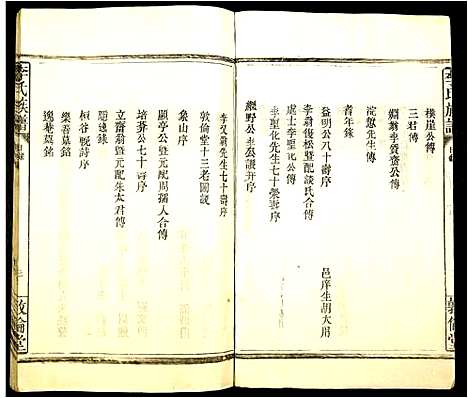 李氏族譜
樸崖公傳
三君傳
淵翁李贊齋公傳
浣惣先生傳
耆年錄
益明公八十壽序
李翁復松暨配談氏合傳 邑庠生胡大用
處士李聖化公傳
李聖化先生七十榮壽序
繼野公李公讓弄序
敦倫堂
李氏族譜
李又翁先生七十壽序
敦倫堂十三老圖說
象山序
願亭公暨元配周孺人合傳
培莽公七十壽序
立齋翁暨元配朱太君傳
隨遠錄
栢谷晚詩序
樂吾墓銘
逸菴墓銘
敦倫堂